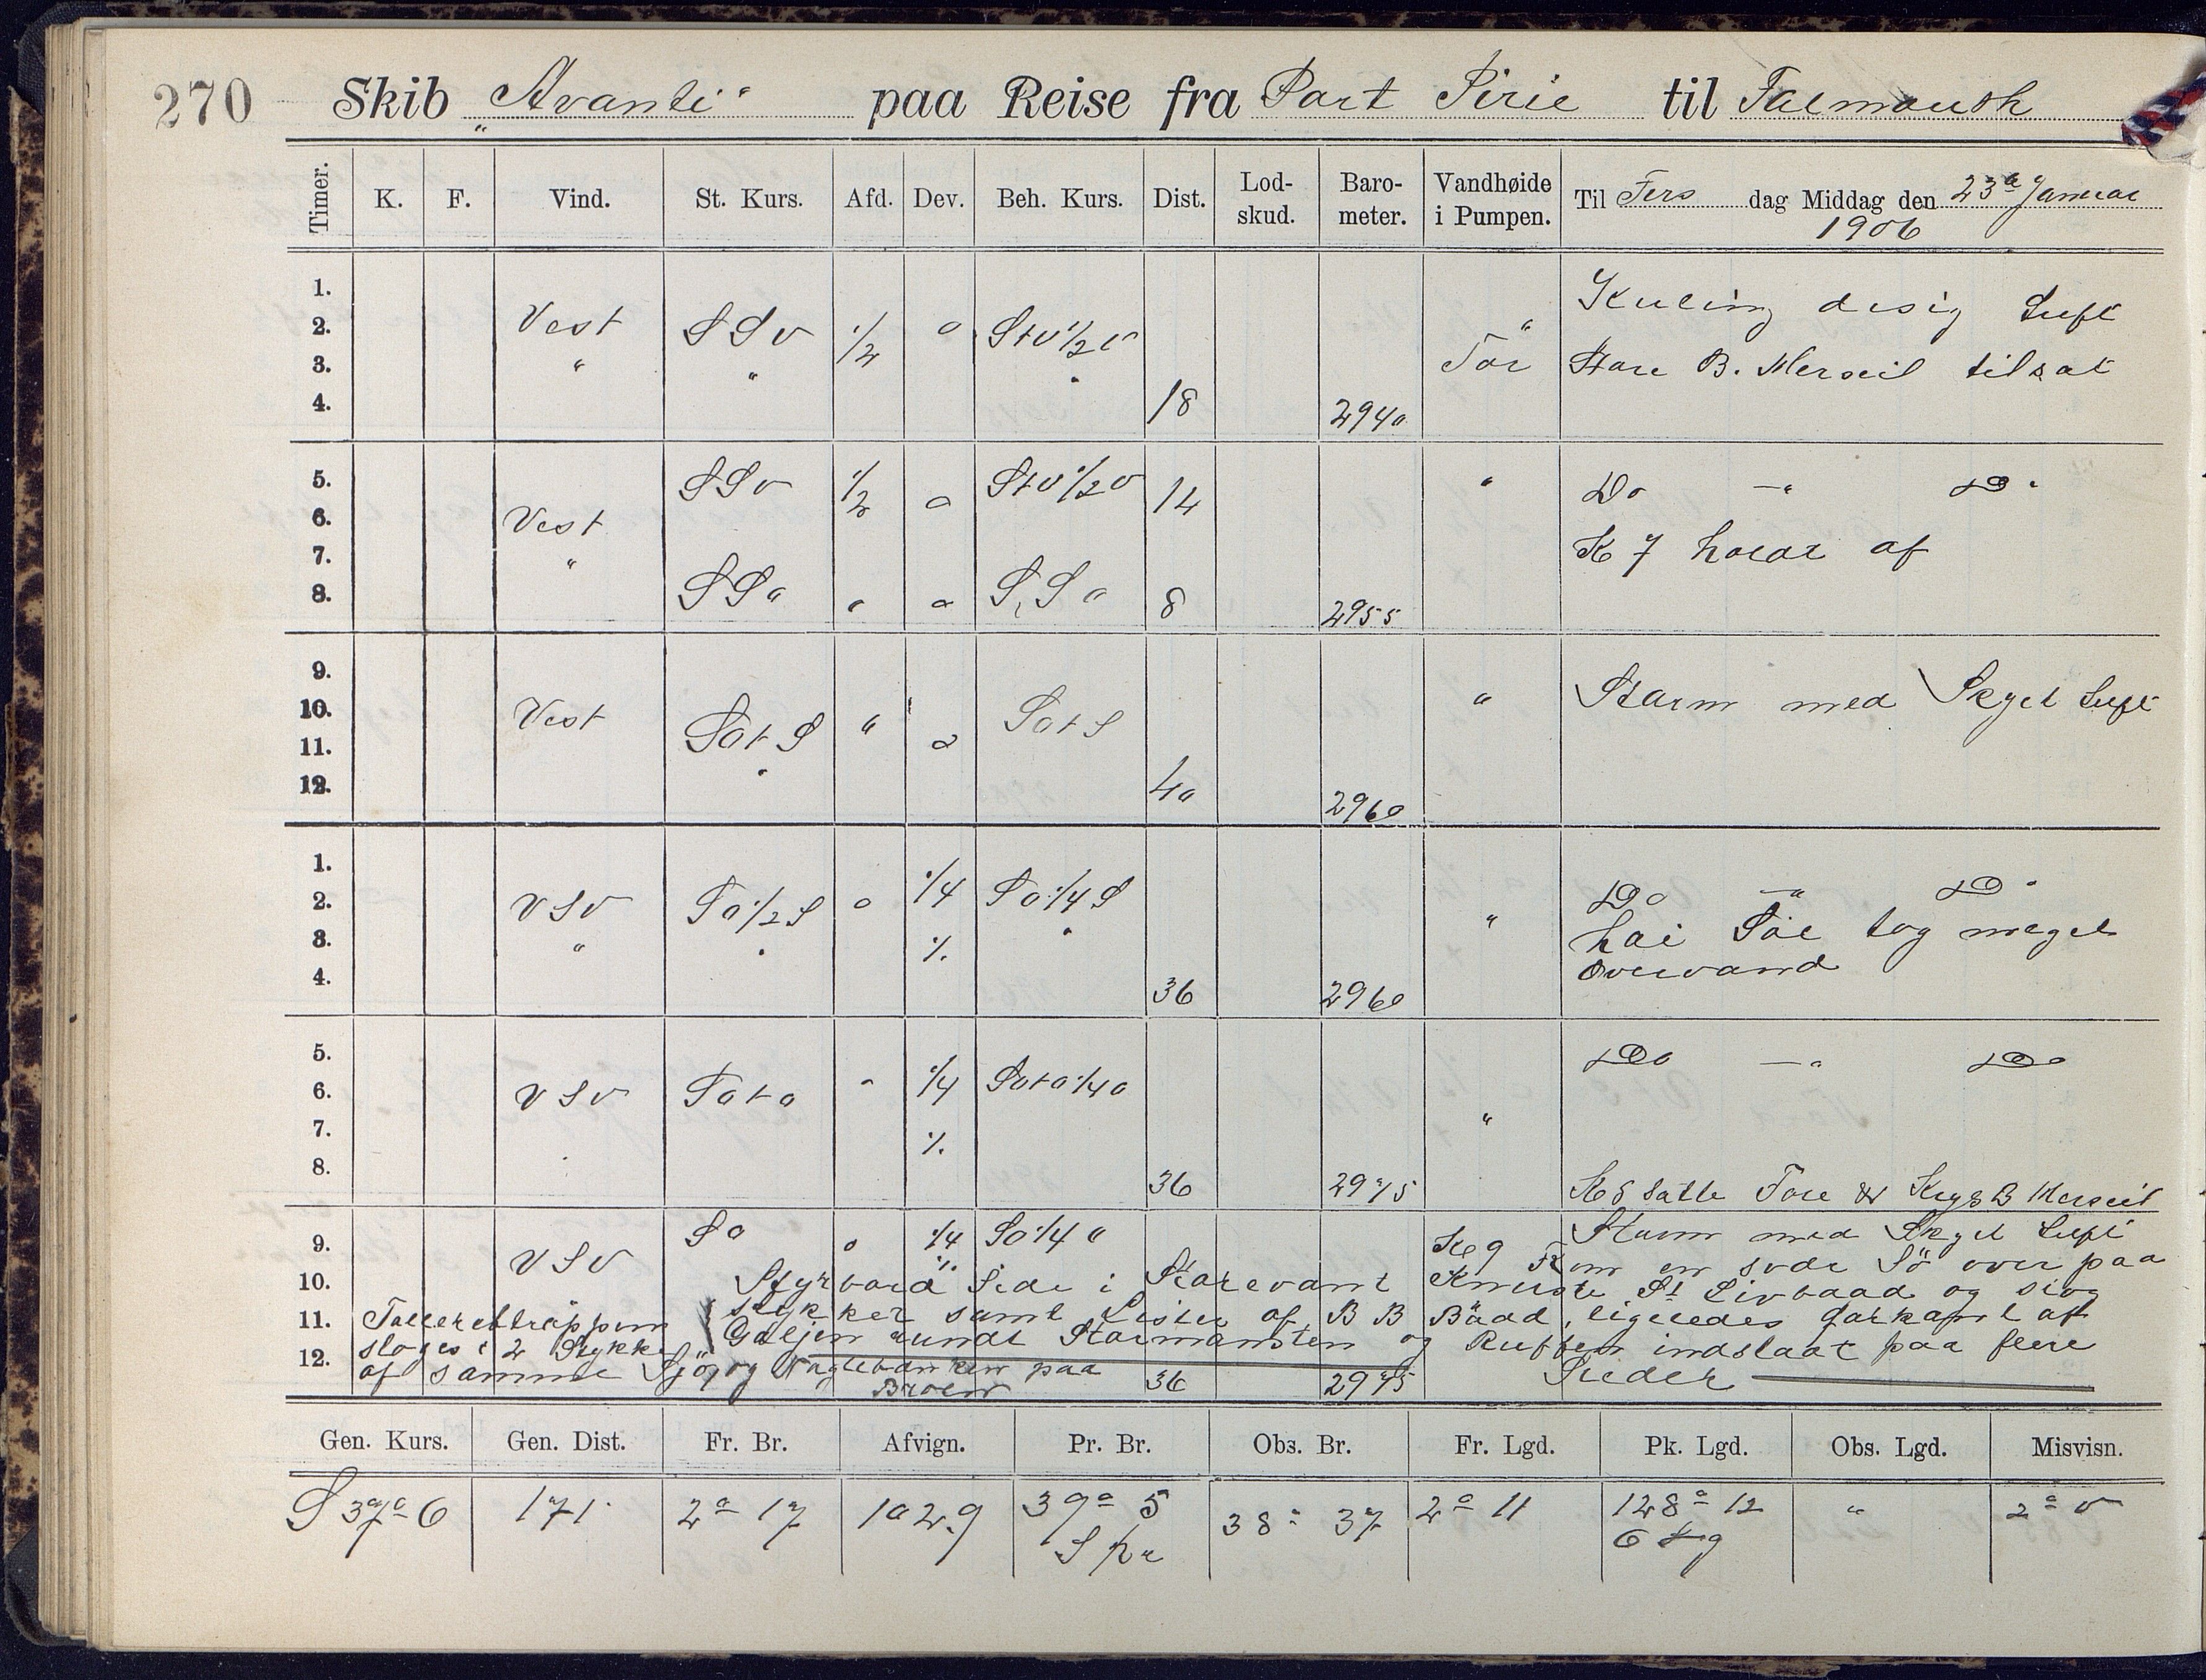 270 Skib „Avanti“ paa Reise fra Port Pirie til Falmouth
Timer. K. F. Vind. St. Kurs. Afd. Dev. Beh. Kurs. Dist. Lod-skud. Baro-meter. Vandhøide i Pumpen. Til Tirs dag Middag den 23de Januar
1906
1. Kuling disig Luft
2. Vest SSV 1/2 0 StV1/2V "
3. " " " Tør Store B. Merseil tilsat
4. 18 2940
5. SSV 1/2 0 StV1/2V 14 " Do —"— Do
6. Vest
7. " Kl 7 halar af
8. SSO " 0 SSO 8 2955
9.
10. Vest SOtS " 0 SOtS " Storm med Skyet Luft
11. "
12. 40 2960
1.
2. VSV SO1/2S 0 1/4 SO1/4S Do —"— Do
3. " " % " " høi Sø tog meget
4. 36 2960 overvand
5. Do —"— Do
6. VSV SOtO " 1/4 SOtO1/4O
7. % "
8. 36 2975 Kl 8 satte Fore & Kryds B Merseil
9. VSV SO 0 1/4 SO1/4O Storm med Skyet Luft
Kl 9 Kom en svær Sö over paa
10. Styrbord Side i Storevant Knuste St Livbaad og slog
11. stykker samt Lister af B B Baad, ligeledes
Falderebtrappen Galjen rundt Stormasten og Ruffen indslaat paa flere
12. sloges i 2 Stykker
af samme Sjö, og Naglebanken paa Broen 36 2975 Steder
Gen. Kurs. Gen. Dist. Fr. Br. Afvign. Pr. Br. Obs. Br. Fr. Lgd. Pk. Lgd. Obs. Lgd. Misvisn.
S 37° O 171 2° 17 102.9 39° 5 38° 37 2° 11 128° 12 " 2° O
S Br O Lg